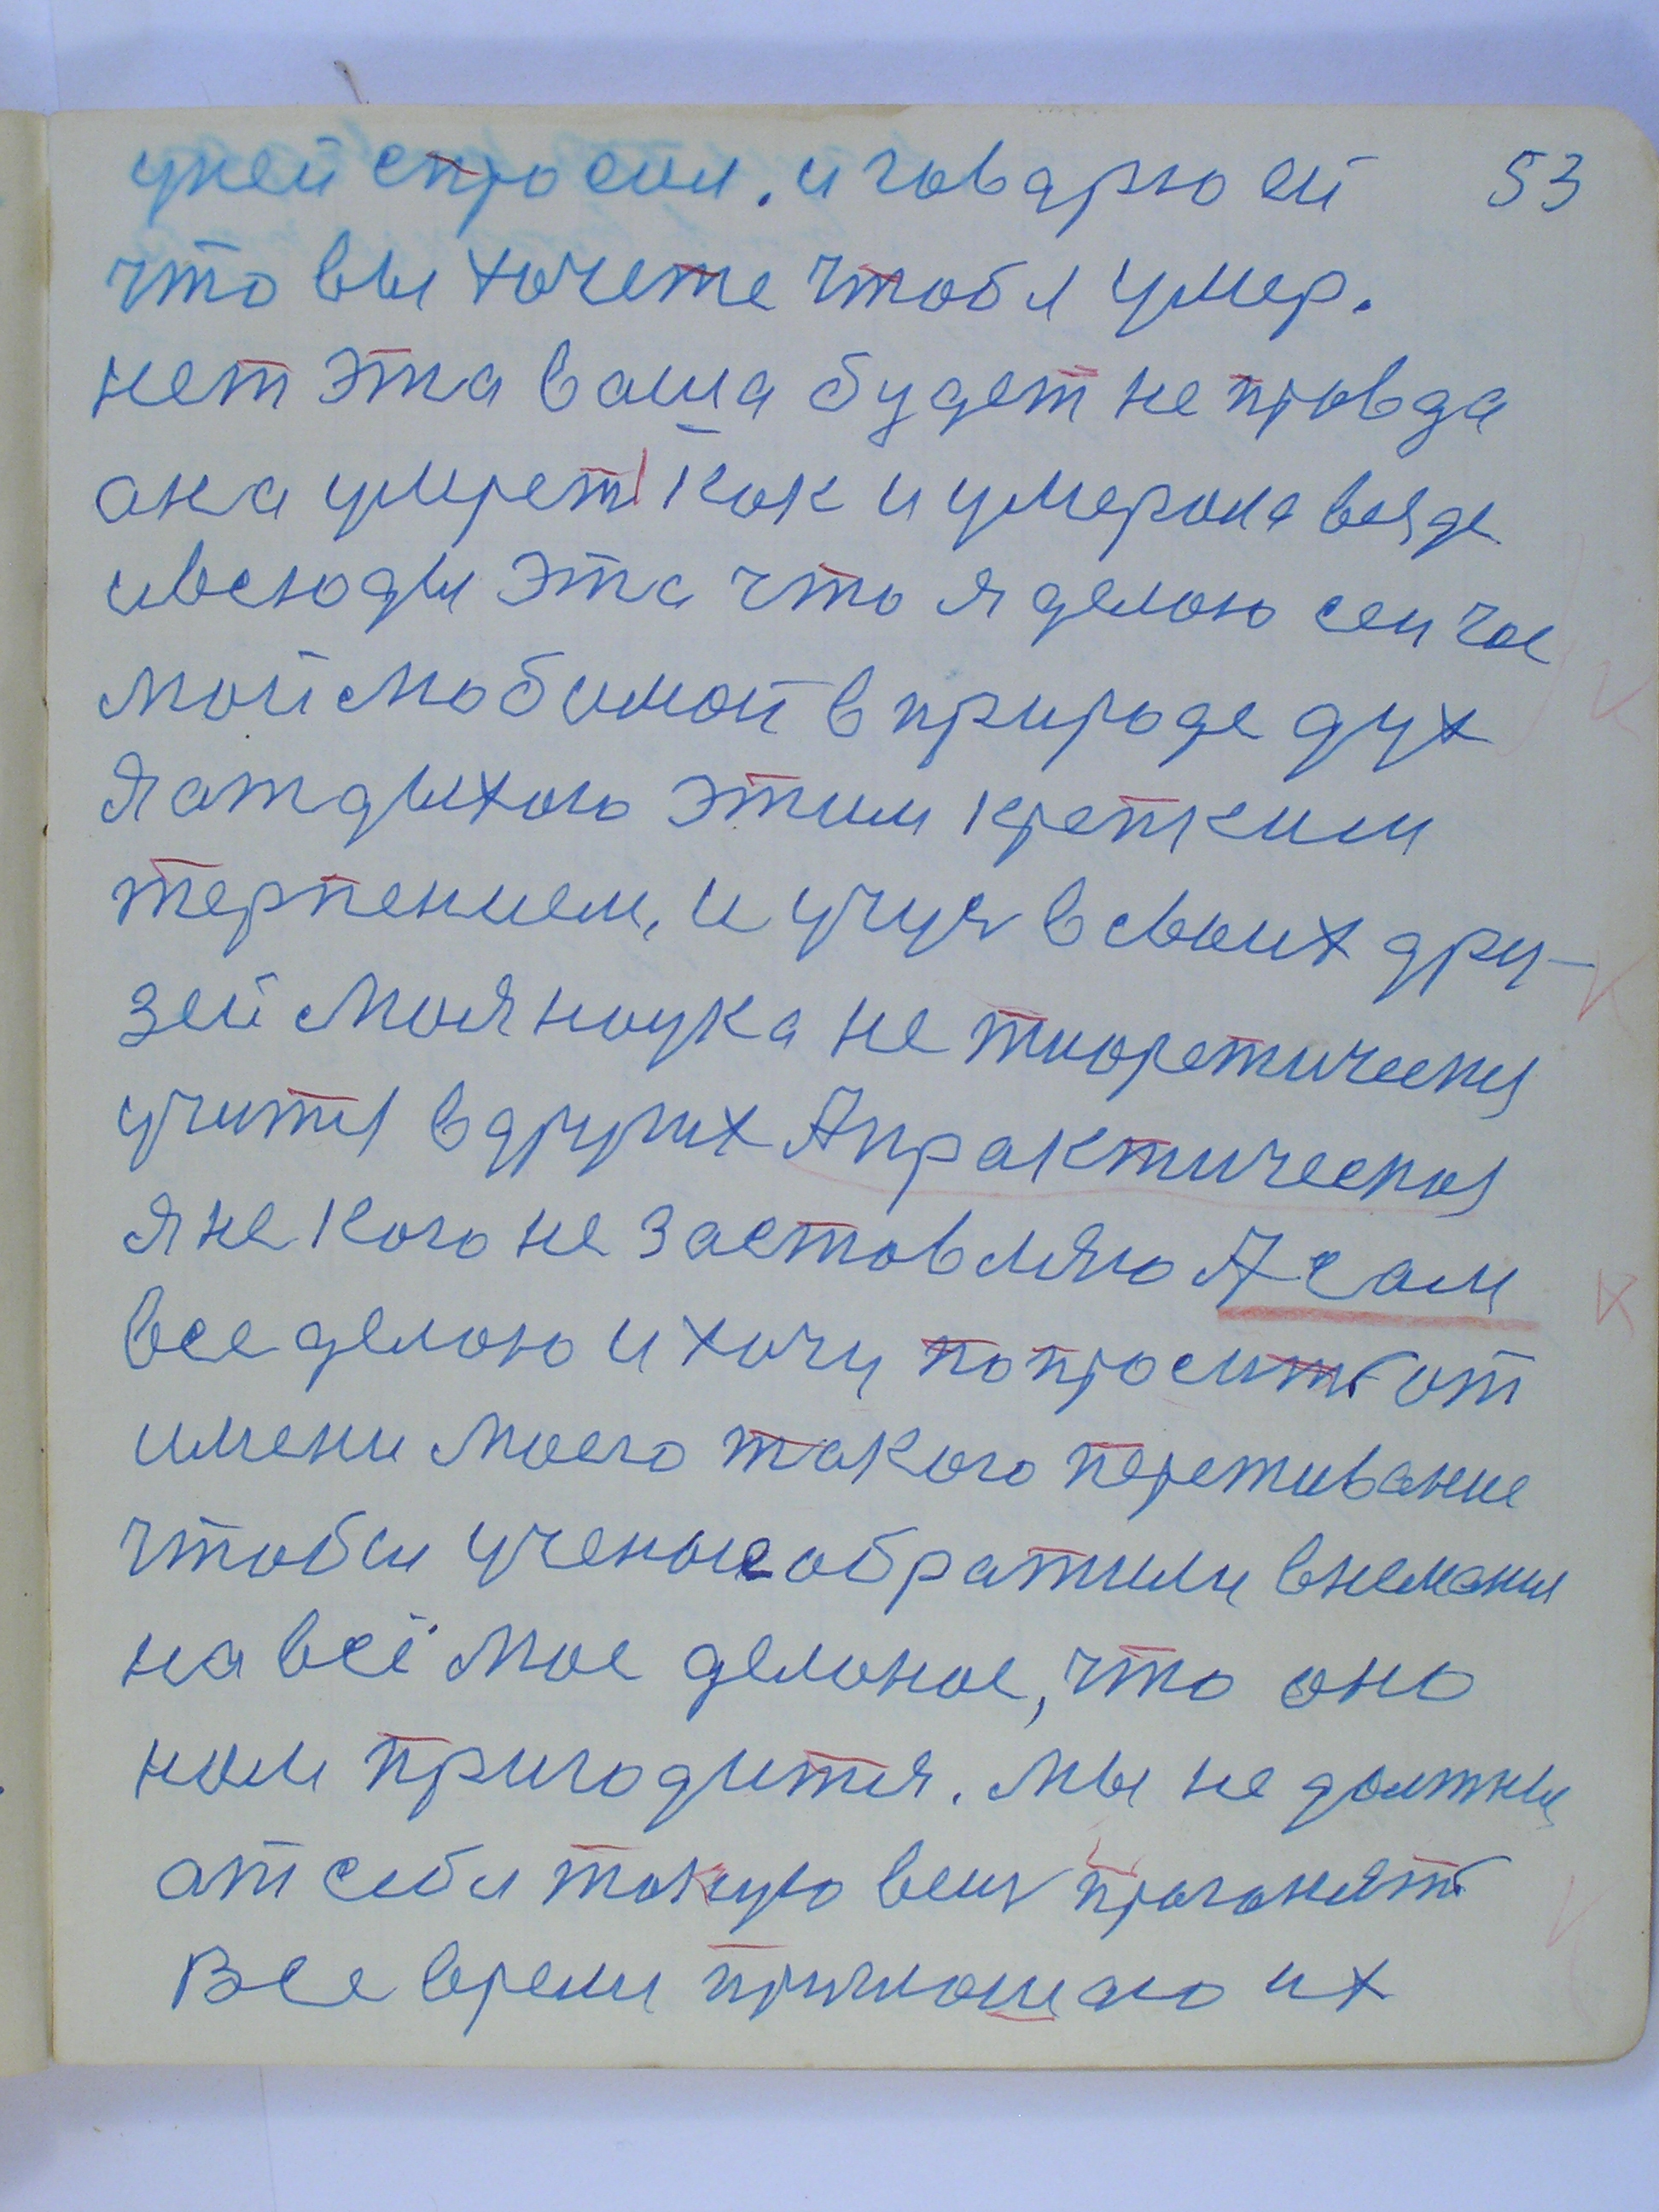 уней спросил. и говарю ей 53
что вы хочете чтоб я умер.
нет эта ваша будет не провда
ана умрет как и умерала везде
ивсюды эта что я делаю сеичас
мой любимай в природе дух
я атдыхаю этим крепким
терпением, и учуся в своих дру-
зей моя наука не тиоретически
учится в других А практически
я не кого не заставляю А сам
все делаю и хочу попросить от
имени моего такого переживание
чтобы ученые обратили внемания
на всё мое деланое, что оно
нам пригодится. мы не должны
ат себя такую вещ прогонять
Все время приглашаю их